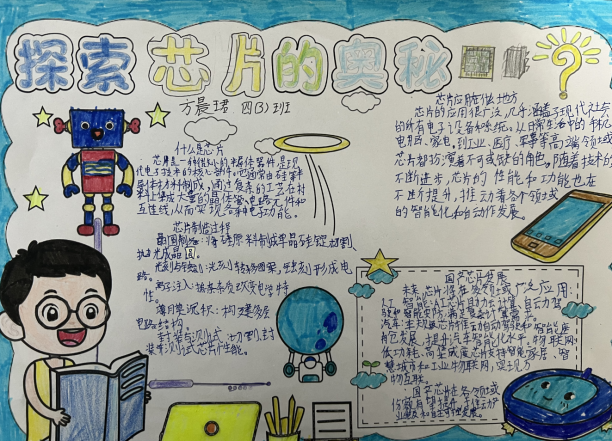 探索芯片的奥秘
方晨珺 四(3)班
什么是芯片
芯片是一种微小的半导体器件,是现
代电子技术的核心部件。它通常由硅
材料制成,通过复杂的工艺在
料上集成大量的晶体管、电路元件和
互连线,从而实现各种电子功能。
芯片制造过程
晶圆制造:将硅原料制成单晶硅锭,切割、
抛光成晶圆。
光刻与刻蚀:光刻转移图案,蚀刻形成电
路。
性。
薄膜沉积:构建多层
电路结构
封装与测试:切割、封
装并测试芯片性能。
芯片应用在哪些地方
芯片的应用很广泛,几乎涵盖了现代社会
的所有电子设备和系统。从日常生活中的手机、
电脑、家电,到工业、医疗、军事等高端领域
芯片都扮演着不可或缺的角色。随着技术的
不断进步,芯片的性能和功能也在
不断提升,推动着各个领域
的智能化和自动化发展。
国产芯片发展
未来芯片将在多个领域广泛应用。
人工智能:AI芯片助力云计算、自动驾
汽车:车规级芯片推动自动驾驶和智能座
舱发展,提升汽车智能化水平。物联网:
低功耗、高集成度芯片支持智能家居、智
慧城市和工业物联网,实现万
物互联。
国产芯片在各领域